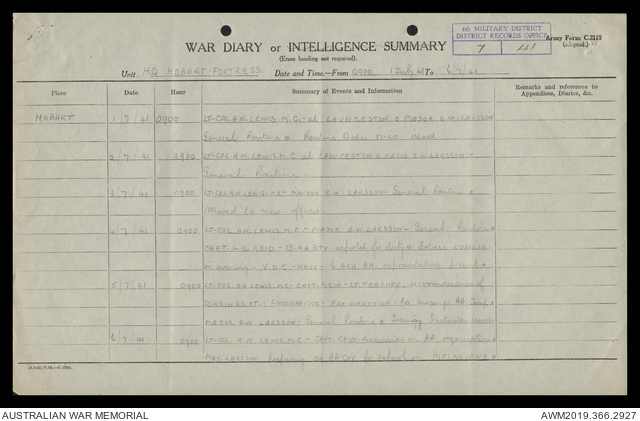 6th MILITARY DISTRICT
DISTRICT RECORDS OFFICE
7 41
Army Form C.2118
(adapted.)
WAR DIARY or INTELLIGENCE SUMMARY
(Erase heading not required).
Unit H.Q HOBART-FORTRESS. Date and Time.—From 0900 1 July 41 To 6/7/41
Place Date Hour Summary of Events and Information Remarks and references to
Appendices, Diaries, &c.
HOBART 1/7/41 0900 LT-COL. A.W. LEWIS M.C. - at LAUNCESTON MAJOR G.W. LARSSON
General Routine Routine Order 17-20 issued
2/7/41 0900 LT-COL A.W. LEWIS M.C at LAUNCESTON MAJOR G.W LARSSON -
General Routine.
3/7/41 0900 LT-COL A.W. LEWIS. MC - MAJOR G.W. LARSSON - General Routine
Moved to new offices
4/7/41 0900 LT-COL. A.W. LEWIS. M.C - MAJOR G.W. LARSSON - General Routine
CAPT. REID - AA BTY reported for duty
V.D.C - NAVY - 6 GSN BN
5/7/41 0900 LT-COL. A.W LEWIS MC - CAPT REID - LT reconnaissance of
to arrange AA
MAJOR G.W. LARSSON - General Routine
6/7/41 0900 LT-COL. A.W LEWIS. M.C - CAPT. REID discussion on AA organisation
MAJ. LARSSON AA for school in MELBOURNE
AUSTRALIAN WAR MEMORIAL AWM2019.366.2927